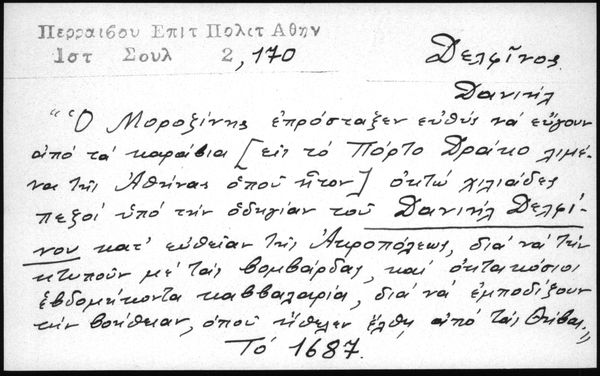 Περραιβου Επιτ Πολιτ Αθην
Ιστ Σουλ 2, 170
Δελφῖνος
Δανιήλ
"Ὁ Μοροζίνης ἐπρόσταξεν εὐθύς νά εὔγουν
ἀπό τά καράβια [εἰς τό Πόρτο Δράκο λιμέ-
να τῆς Ἀθήνας ὁποῦ ἦτον] ὀκτώ χιλιάδες
πεζοί ὑπό τήν ὁδηγίαν τοῦ Δανιήλ Δελφί-
νου κατ' εὐθεῖαν τῆς Ἀκροπόλεως, διά νά τήν
κτυποῦν μέ τάς βομβάρδας, καί ὀκτακόσιοι
ἑβδομήκοντα καββαλαρία, διά νά ἐμποδίξουν
τήν βοήθειαν, ὁποῦ ἤθελεν ἔλθῃ ἀπό τάς Θήβας."
Τό 1687.